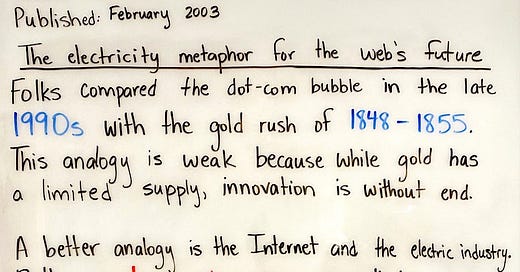 Published: February 2003
The electricity metaphor for the web's future
Folks compared the dot-com bubble in the late
1990s with the gold rush of 1848 - 1855.
This analogy is weak because while gold has
a limited supply, innovation is without end.
A better analogy is the Internet and the electric industry.